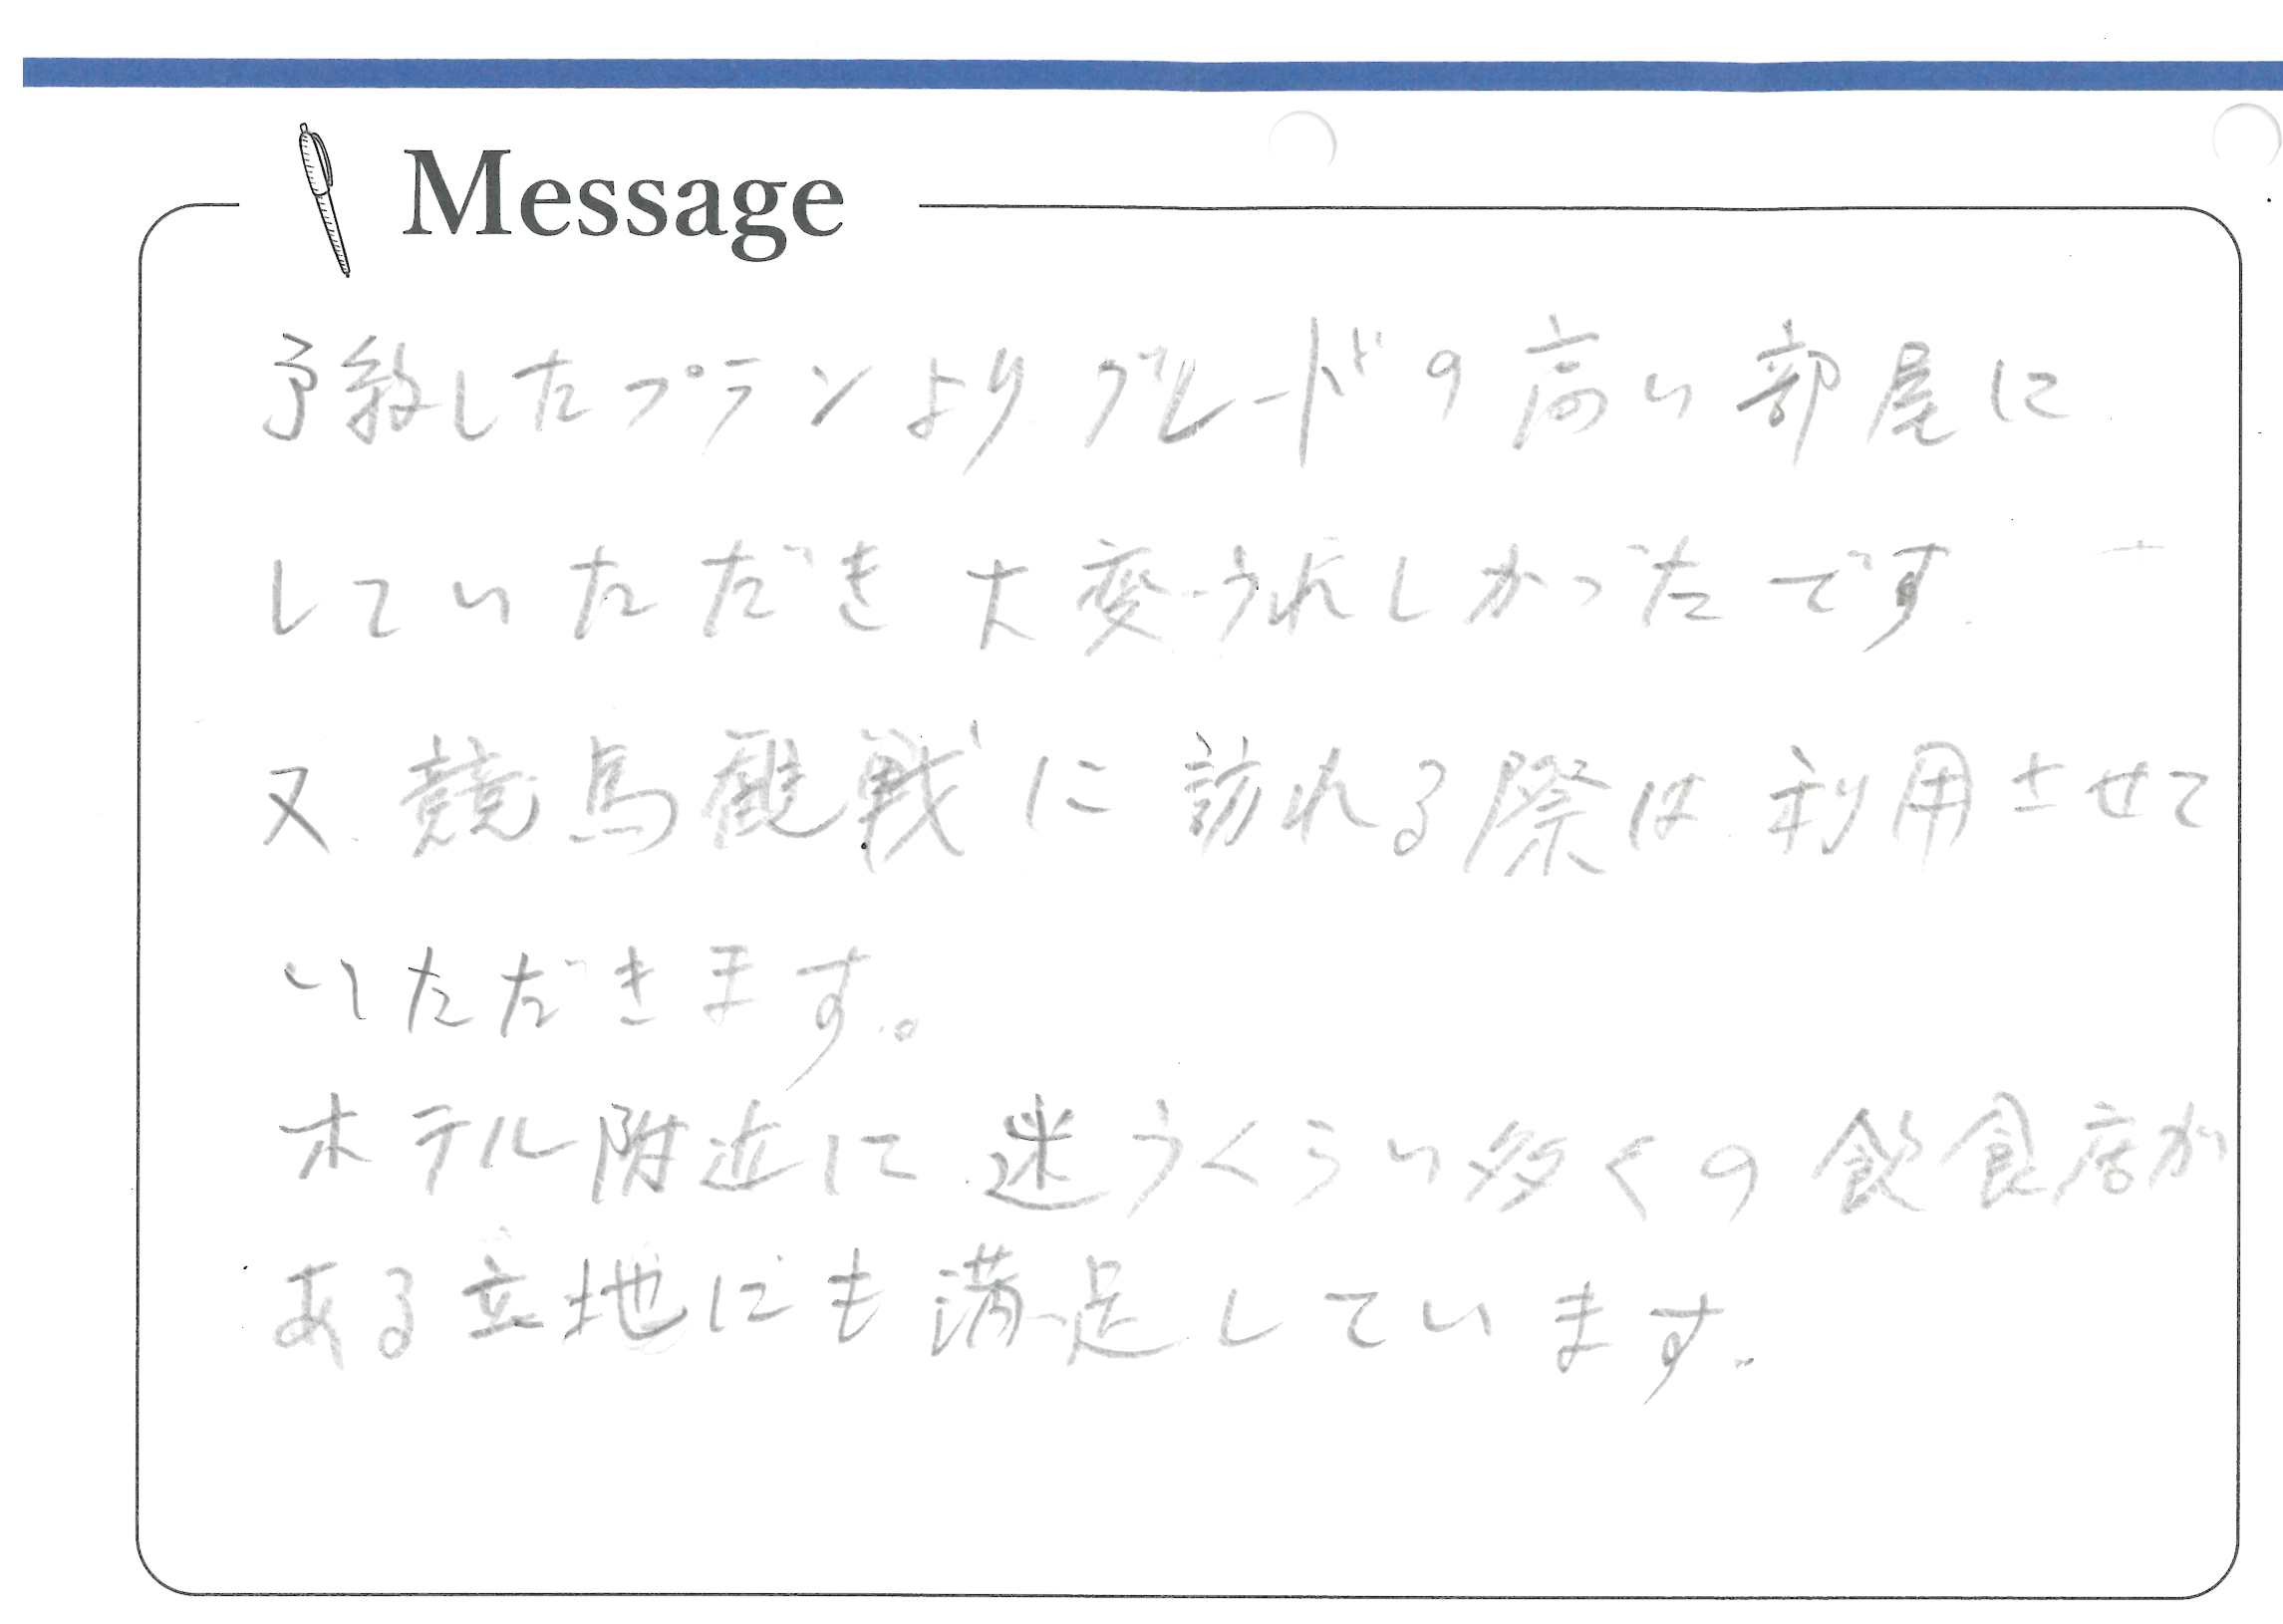 Message
予約したプランよりグレードの高い部屋に
していただき大変うれしかったです
又、競馬観戦に訪れる際は利用させて
いただきます。
ホテル附近に迷うくらい多くの飲食店が
ある立地にも満足しています。